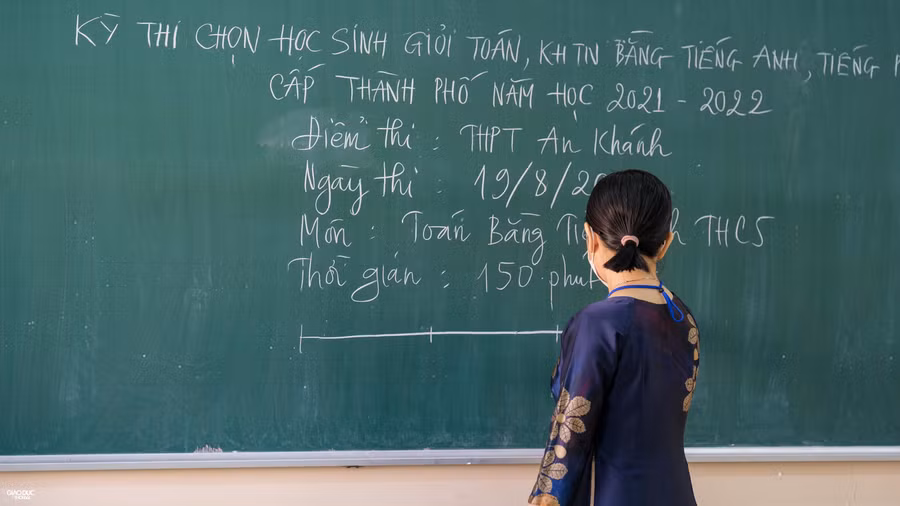 KỲ THI CHỌN HỌC SINH GIỎI TOÁN, KHTN BẰNG TIẾNG ANH, TIẾNG
CẤP THÀNH PHỐ NĂM HỌC 2021 - 2022
Điểm thi : THPT An Khánh
Ngày thi : 19/8/20
Môn : Toán Bằng THCS
Thời gian : 150 phút
GIAODUC